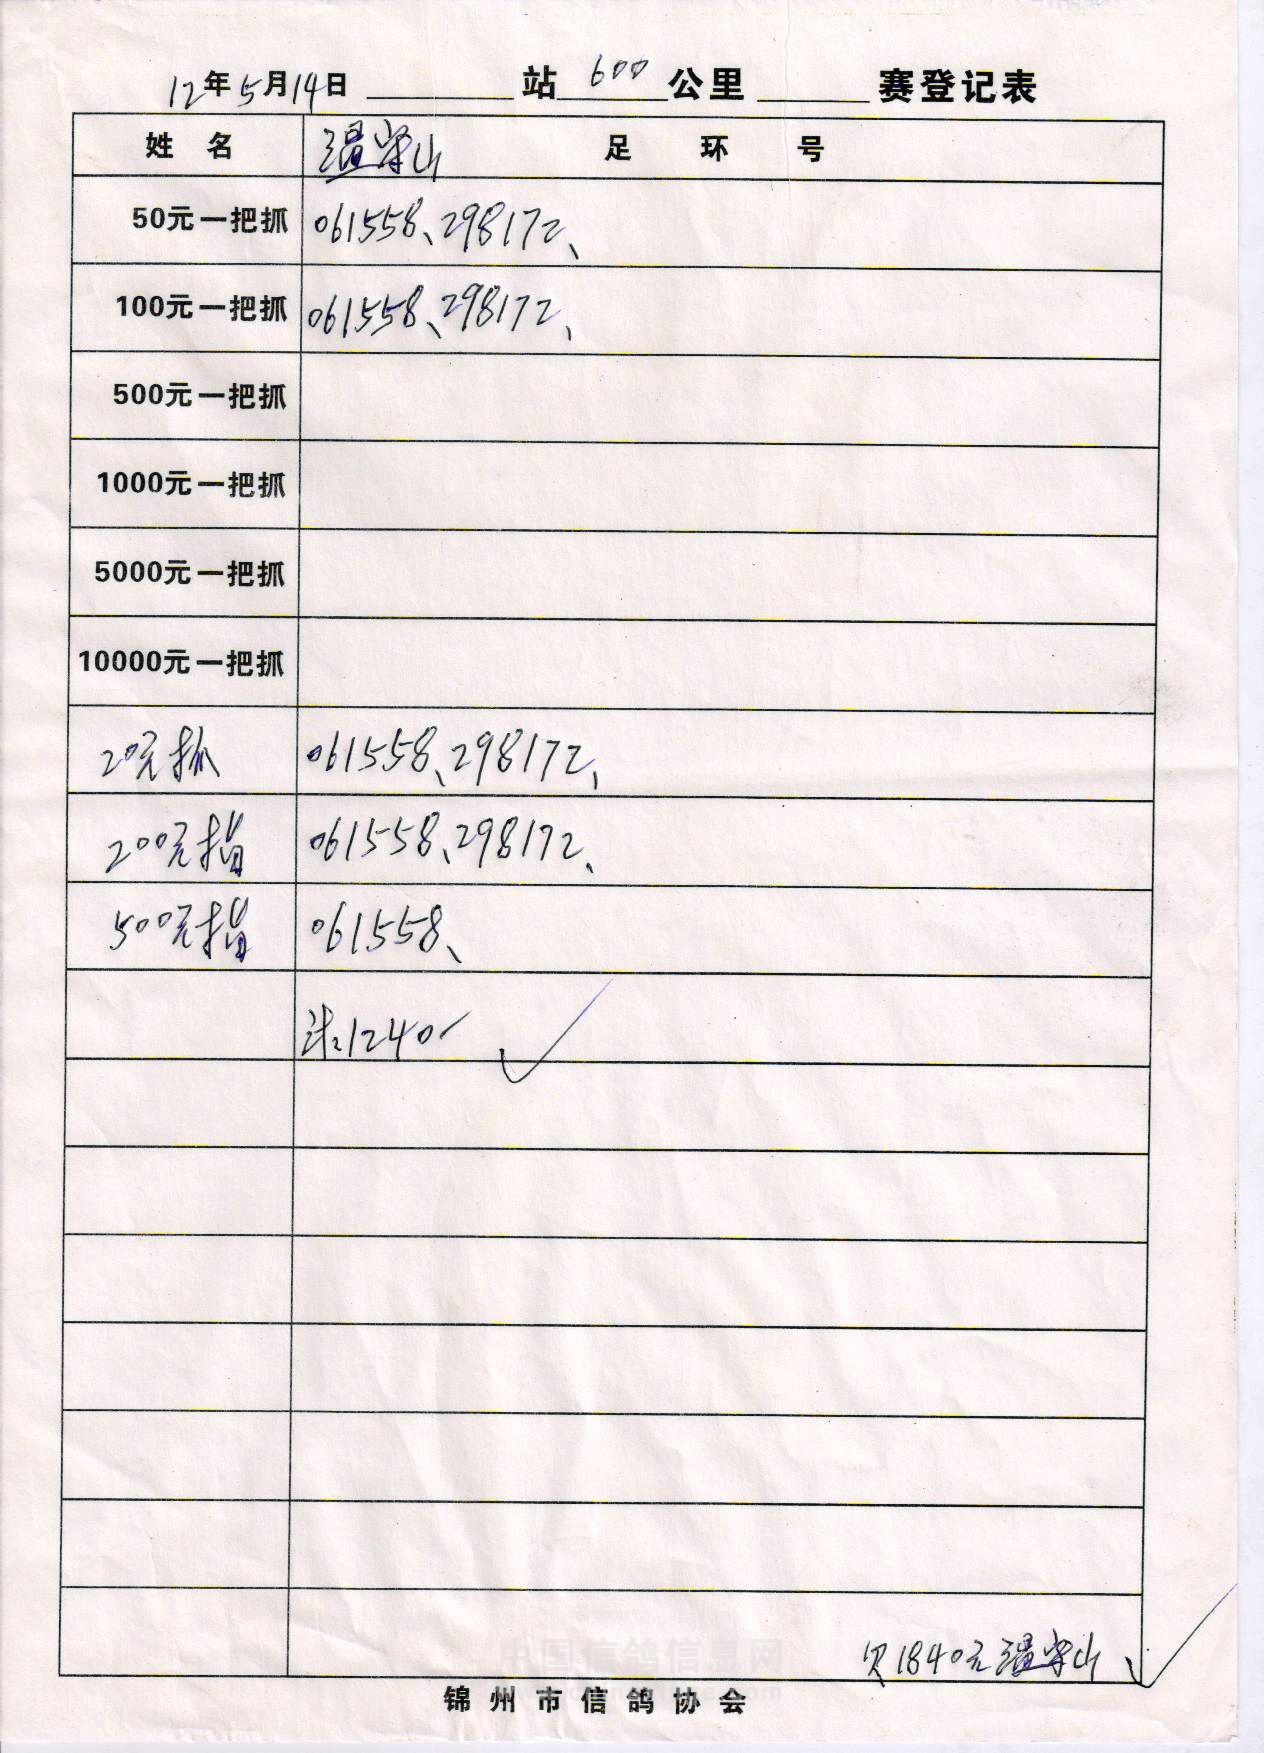 12年5月14日 站 600 公里 赛登记表
姓 名 温学山 足 环 号
50元一把抓 061558、298172、
100元一把抓 061558、298172、
500元一把抓
1000元一把抓
5000元一把抓
10000元一把抓
20元抓 061558、298172、
200元指 061558、298172、
500元指 061558、
计:1240
欠1840元温学山
中国信鸽信息网
锦州市信鸽协会